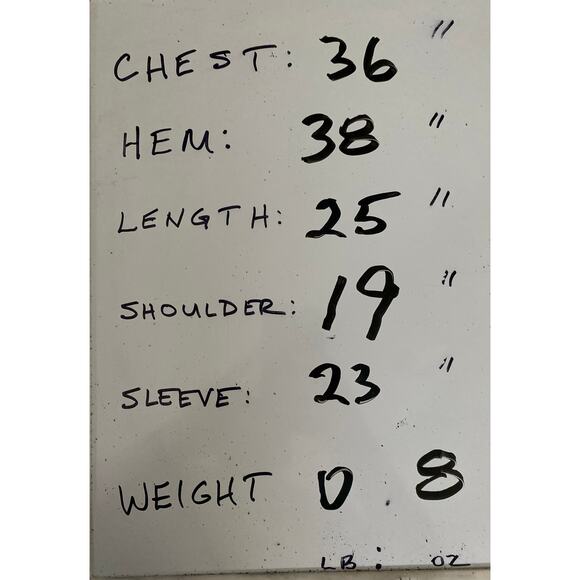 CHEST: 36 "
HEM: 38 "
LENGTH: 25 "
SHOULDER: 19 "
SLEEVE: 23 "
WEIGHT 0 8
LB : OZ